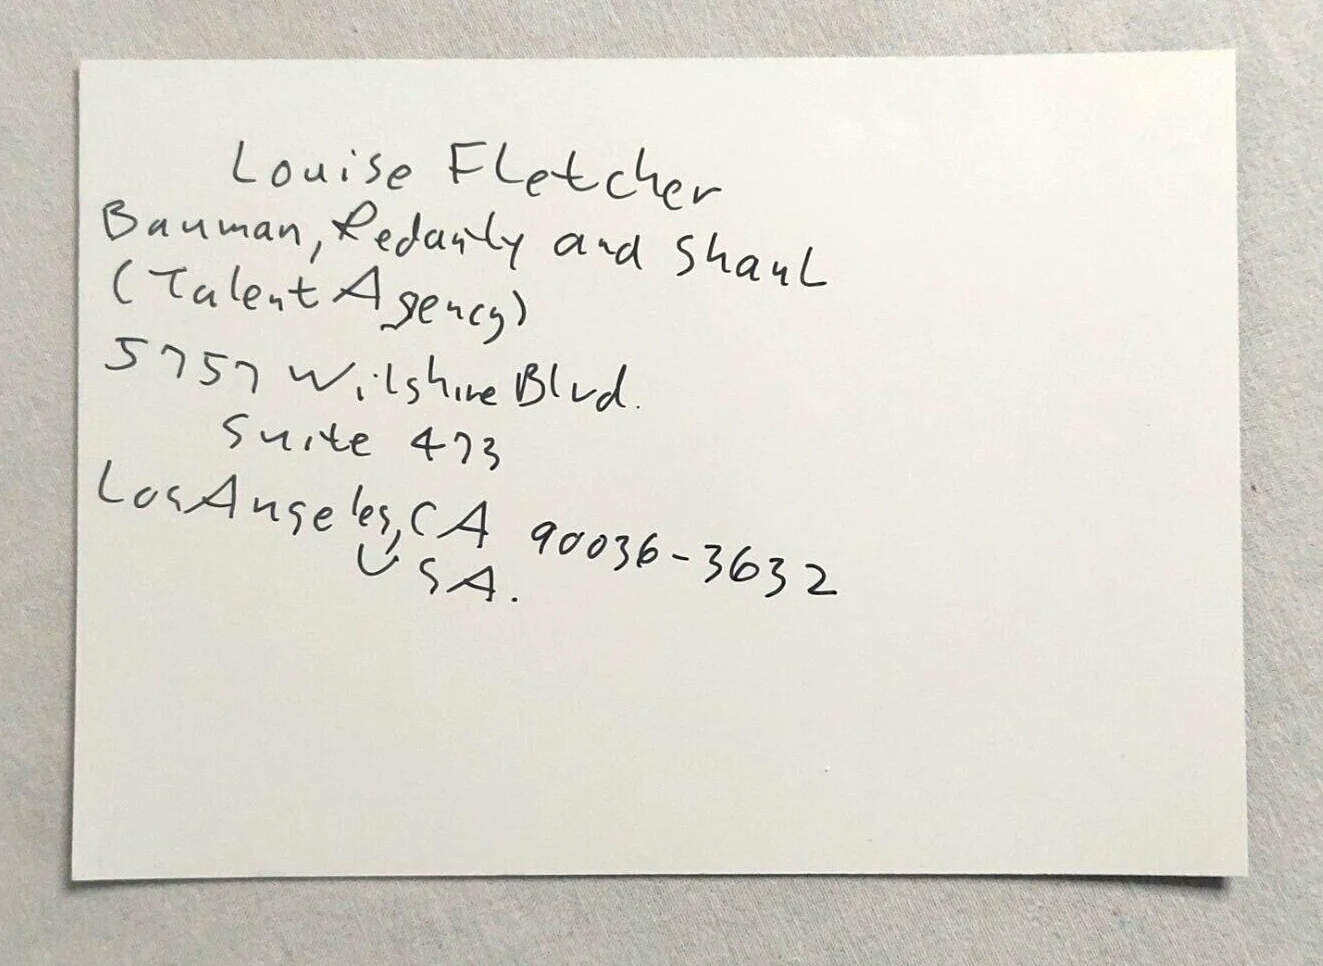 Louise Fletcher
Bauman, Redanty and Shaul
(Talent Agency)
5757 Wilshire Blvd.
Suite 473
Los Angeles, CA 90036-3632
USA.